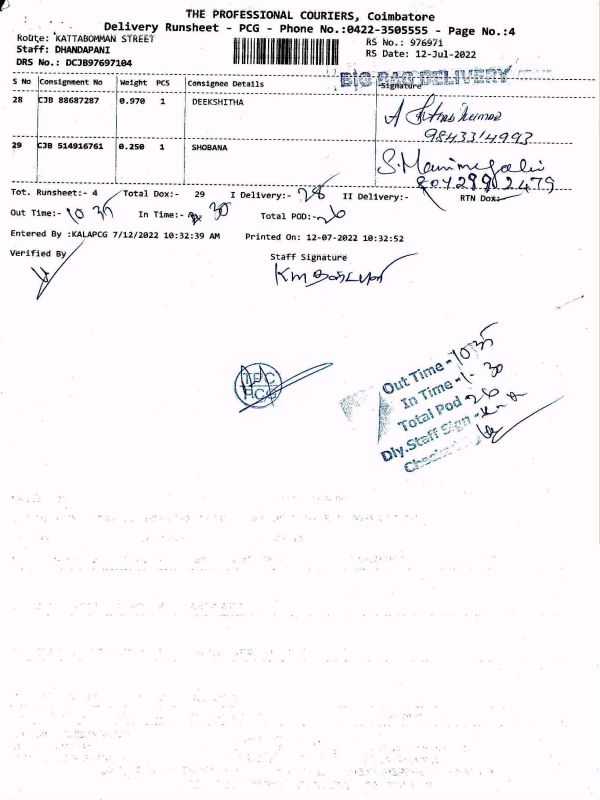 THE PROFESSIONAL COURIERS, Coimbatore
Delivery Runsheet - PCG - Phone No.:0422-3505555 - Page No.:4
Route: KATTABOMMAN STREET
RS No.: 976971
Staff: DHANDAPANI
RS Date: 12-Jul-2022
DRS No.: DCJB97697104
BIG BAG DELIVERY
S No Consignment No Weight PCS Consignee Details Signature
28 CJB 88687287 0.970 1 DEEKSHITHA
9843314993
29 CJB 514916761 0.250 1 SHOBANA
S.Manimegalai
Tot. Runsheet:- 4 Total Dox:- 29 I Delivery:- 28 II Delivery:- RTN Dox:-
Out Time:- 10 35 In Time:- 30 Total POD:- 26
Entered By :KALAPCG 7/12/2022 10:32:39 AM Printed On: 12-07-2022 10:32:52
Verified By Staff Signature
TPC
Out Time - 10 35
In Time - 1 - 30
Total Pod - 26
Dly.Staff Sign -